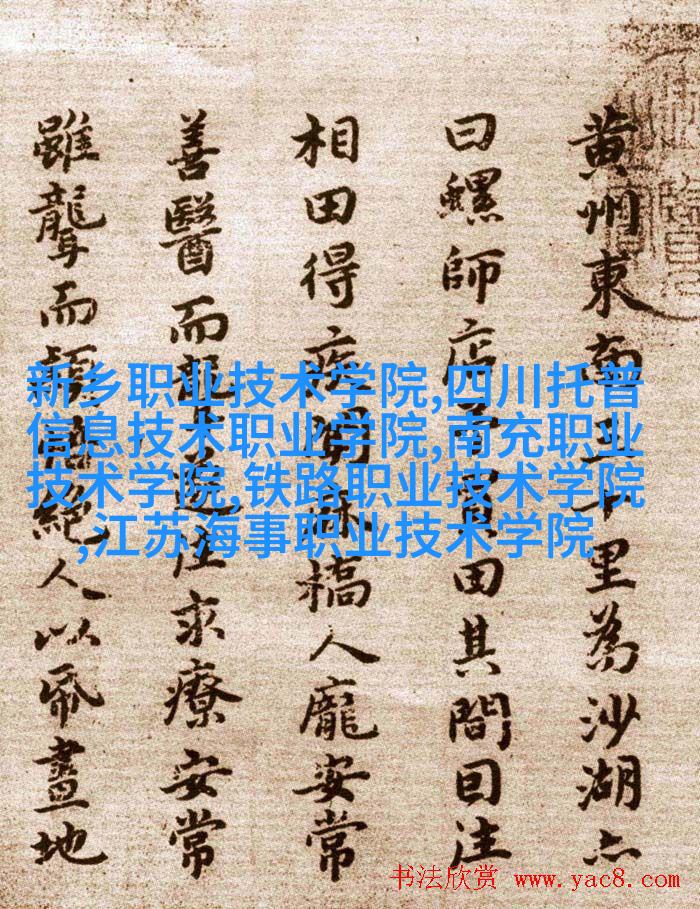 黄州東南三十里為沙湖亦
曰螺師店予買田其間因往
相田得疾聞麻橋人龐安常
善醫而聾遂往求療安常
雖聾而穎悟絕人以帋畫地
新乡职业技术学院,四川托普
信息技术职业学院,南充职业
技术学院,铁路职业技术学院
,江苏海事职业技术学院
书法欣赏 www.yac8.com